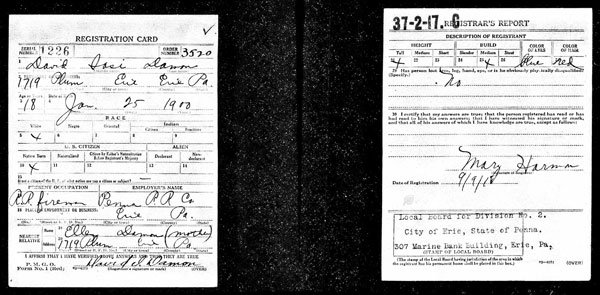 REGISTRATION CARD
SERIAL NUMBER 1226 ORDER NUMBER 3520
1 David Damon
2 719 Plum Erie Erie Pa.
Age in Years Date of Birth
18 Jan. 25 1900
RACE
White Negro Oriental Indian
Citizen Noncitizen
X
U. S. CITIZEN ALIEN
Native Born Naturalized Citizen by Father's Naturalization Before Registrant's Majority Declarant Non-declarant
10 X 11 12 13 14
15 If not a citizen of the U. S., of what nation are you a citizen or subject?
PRESENT OCCUPATION EMPLOYER'S NAME
R.R. fireman Penna R R Co
18 PLACE OF EMPLOYMENT OR BUSINESS:
Erie Pa.
NEAREST RELATIVE Name Ellen Damon (mother)
Address 719 Plum Erie Pa.
I AFFIRM THAT I HAVE VERIFIED ABOVE ANSWERS AND THAT THEY ARE TRUE
P. M. G. O.
Form No. 1 (Red) David Damon
(Registrant's signature or mark) (OVER)
37-2-17. C REGISTRAR'S REPORT
DESCRIPTION OF REGISTRANT
HEIGHT BUILD COLOR OF EYES COLOR OF HAIR
Tall Medium Short Slender Medium Stout
X X Blue Red
29 Has person lost arm, leg, hand, eye, or is he obviously physically disqualified?
(Specify.) No
30 I certify that my answers are true; that the person registered has read or has had read to him his own answers; that I have witnessed his signature or mark, and that all of his answers of which I have knowledge are true, except as follows:
Mary Harmon
Date of Registration 9/9/18
Local Board for Division No. 2.
City of Erie, State of Penna.
307 Marine Bank Building, Erie, Pa,
(STAMP OF LOCAL BOARD)
(The stamp of the Local Board having jurisdiction of the area in which the registrant has his permanent home shall be placed in this box.)
(OVER)